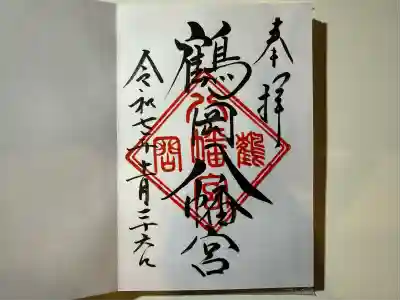 奉拝
鶴岡八幡宮
令和七年十一月二十六日
鶴
八幡宮
岡